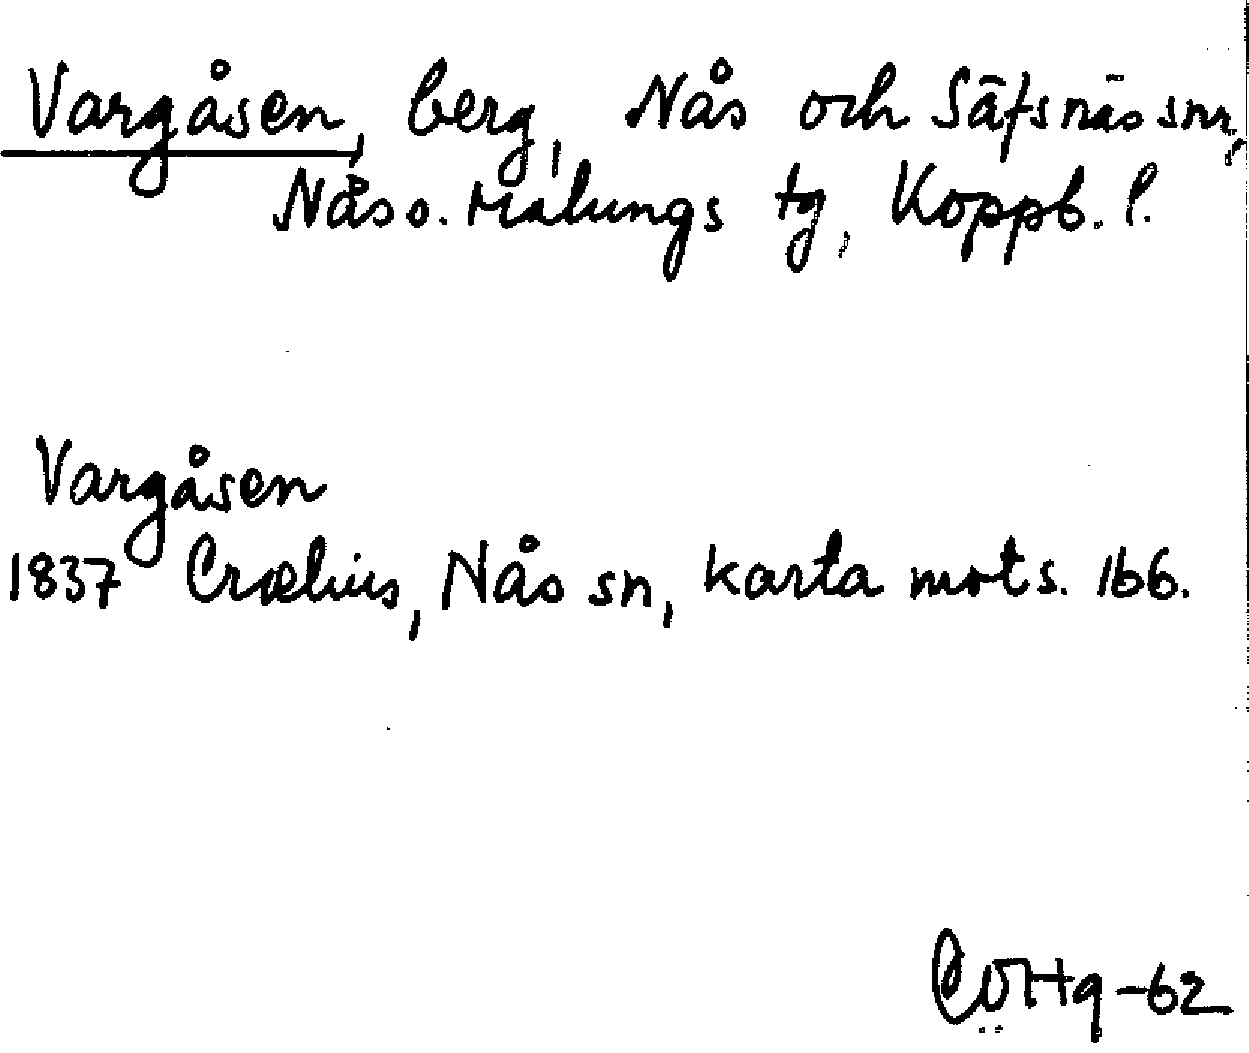 Vargåsen, berg, Nås och Säfsnäs snr,
Nås o. Malungs tg, Koppb. l.
Vargåsen
1837 Crælius, Nås sn, karta mot s. 166.